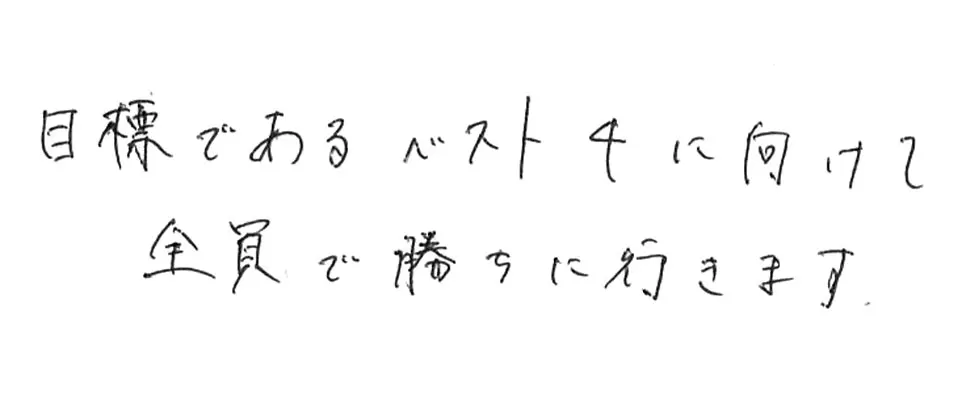 目標であるベスト4に向けて
全員で勝ちに行きます.